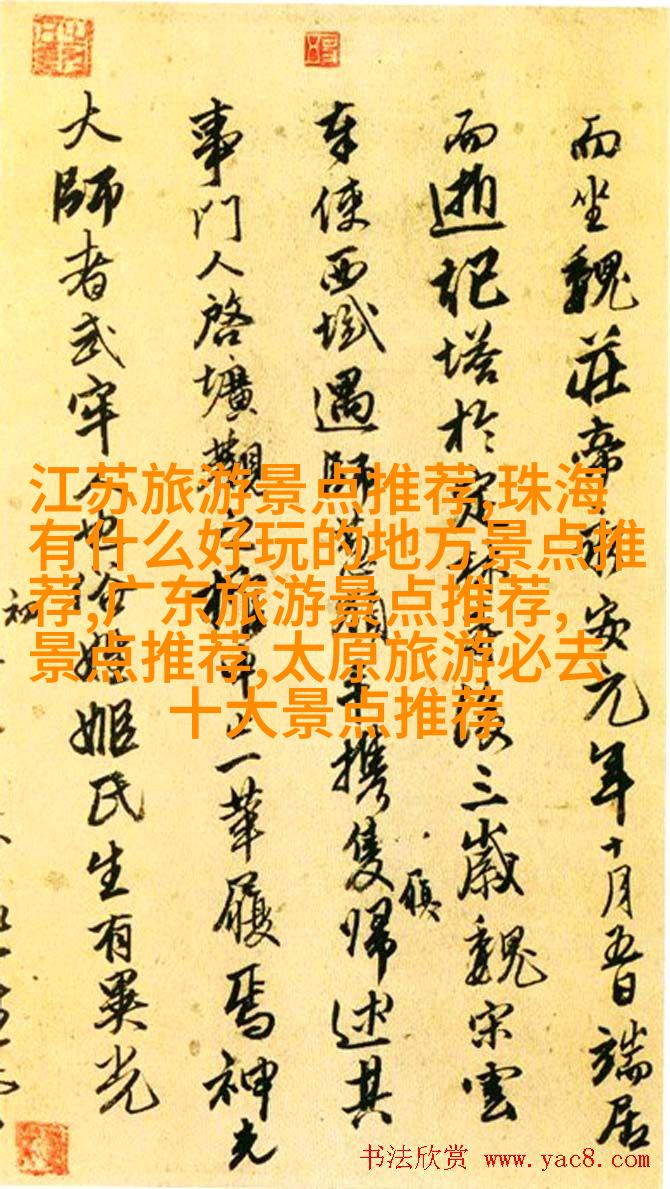 而坐魏莊帝永安元年十月五日端居
而逝記塔於定林後三歲魏宋雲
奉使西域遇師葱嶺手携隻歸述其
履
事門人啓壙觀之棺中止一革履焉神光
大師者武牢人也俗姓姬氏生有異光
初
江苏旅游景点推荐,珠海
有什么好玩的地方景点推
荐,广东旅游景点推荐,
景点推荐,太原旅游必去
十大景点推荐
书法欣赏 www.yac8.com